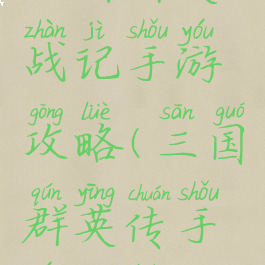 zhàn jì shǒu yóu
战记手游
gōng lüè sān guó
攻略(三国
qún yīng chuán shǒu
群英传手